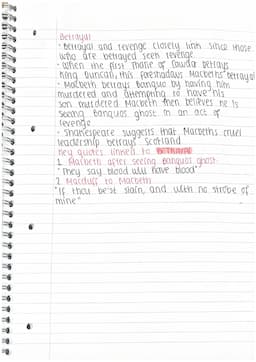 Betrayal
- Betrayal and revenge closely link since those
who are betrayed seek revenge
- When the first Thane of Cawdor betrays
King Duncan, this foreshadows Macbeths betrayal
- Macbeth betrays Banquo by having him
murdered and attempting to have his
son murdered Macbeth then believes he is
seeing Banquos ghost in an act of
revenge
- Shakespeare suggests that Macbeths cruel
leadership betrays Scotland
Key quotes linked to
1. Macbeth after seeing Banquos ghost
"They say blood will have blood"
2. Macduff to Macbeth
"If thou be'st slain, and with no stroke of
mine"